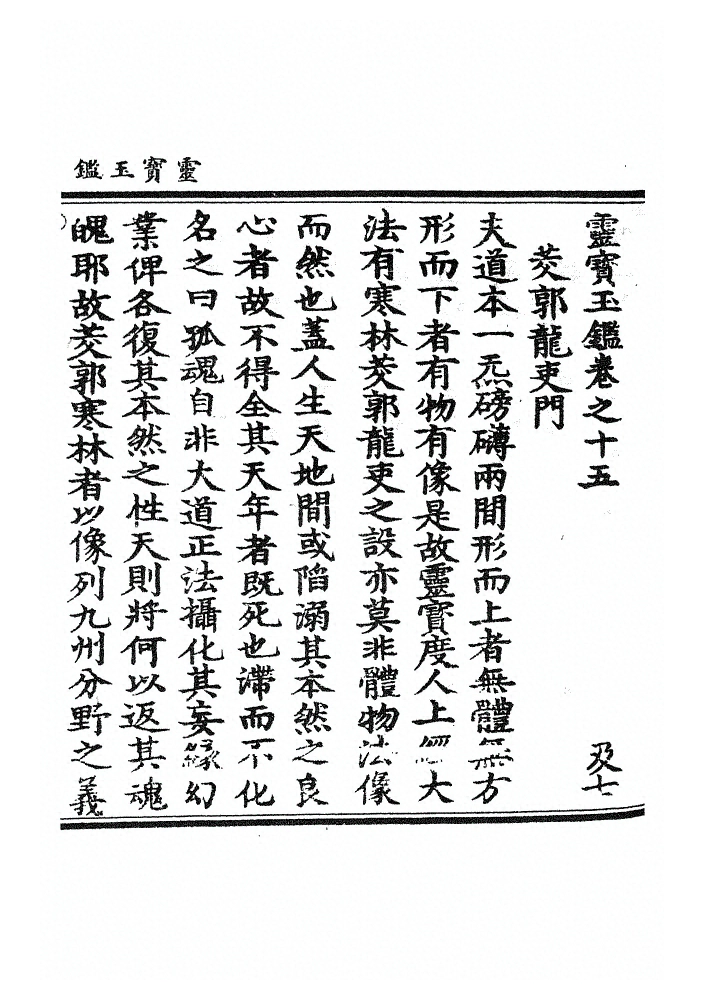 靈寶玉鑑
靈寶玉鑑卷之十五 及七
茭郭龍吏門
夫道本一炁磅礡兩間形而上者無體無方
形而下者有物有像是故靈寶度人上經大
法有寒林茭郭龍吏之設亦莫非體物法像
而然也蓋人生天地間或陷溺其本然之良
心者故不得全其天年者既死也滯而不化
名之曰孤魂自非大道正法攝化其妄緣幻
業俾各復其本然之性天則將何以返其魂
魄耶故茭郭寒林者以像列九州分野之義